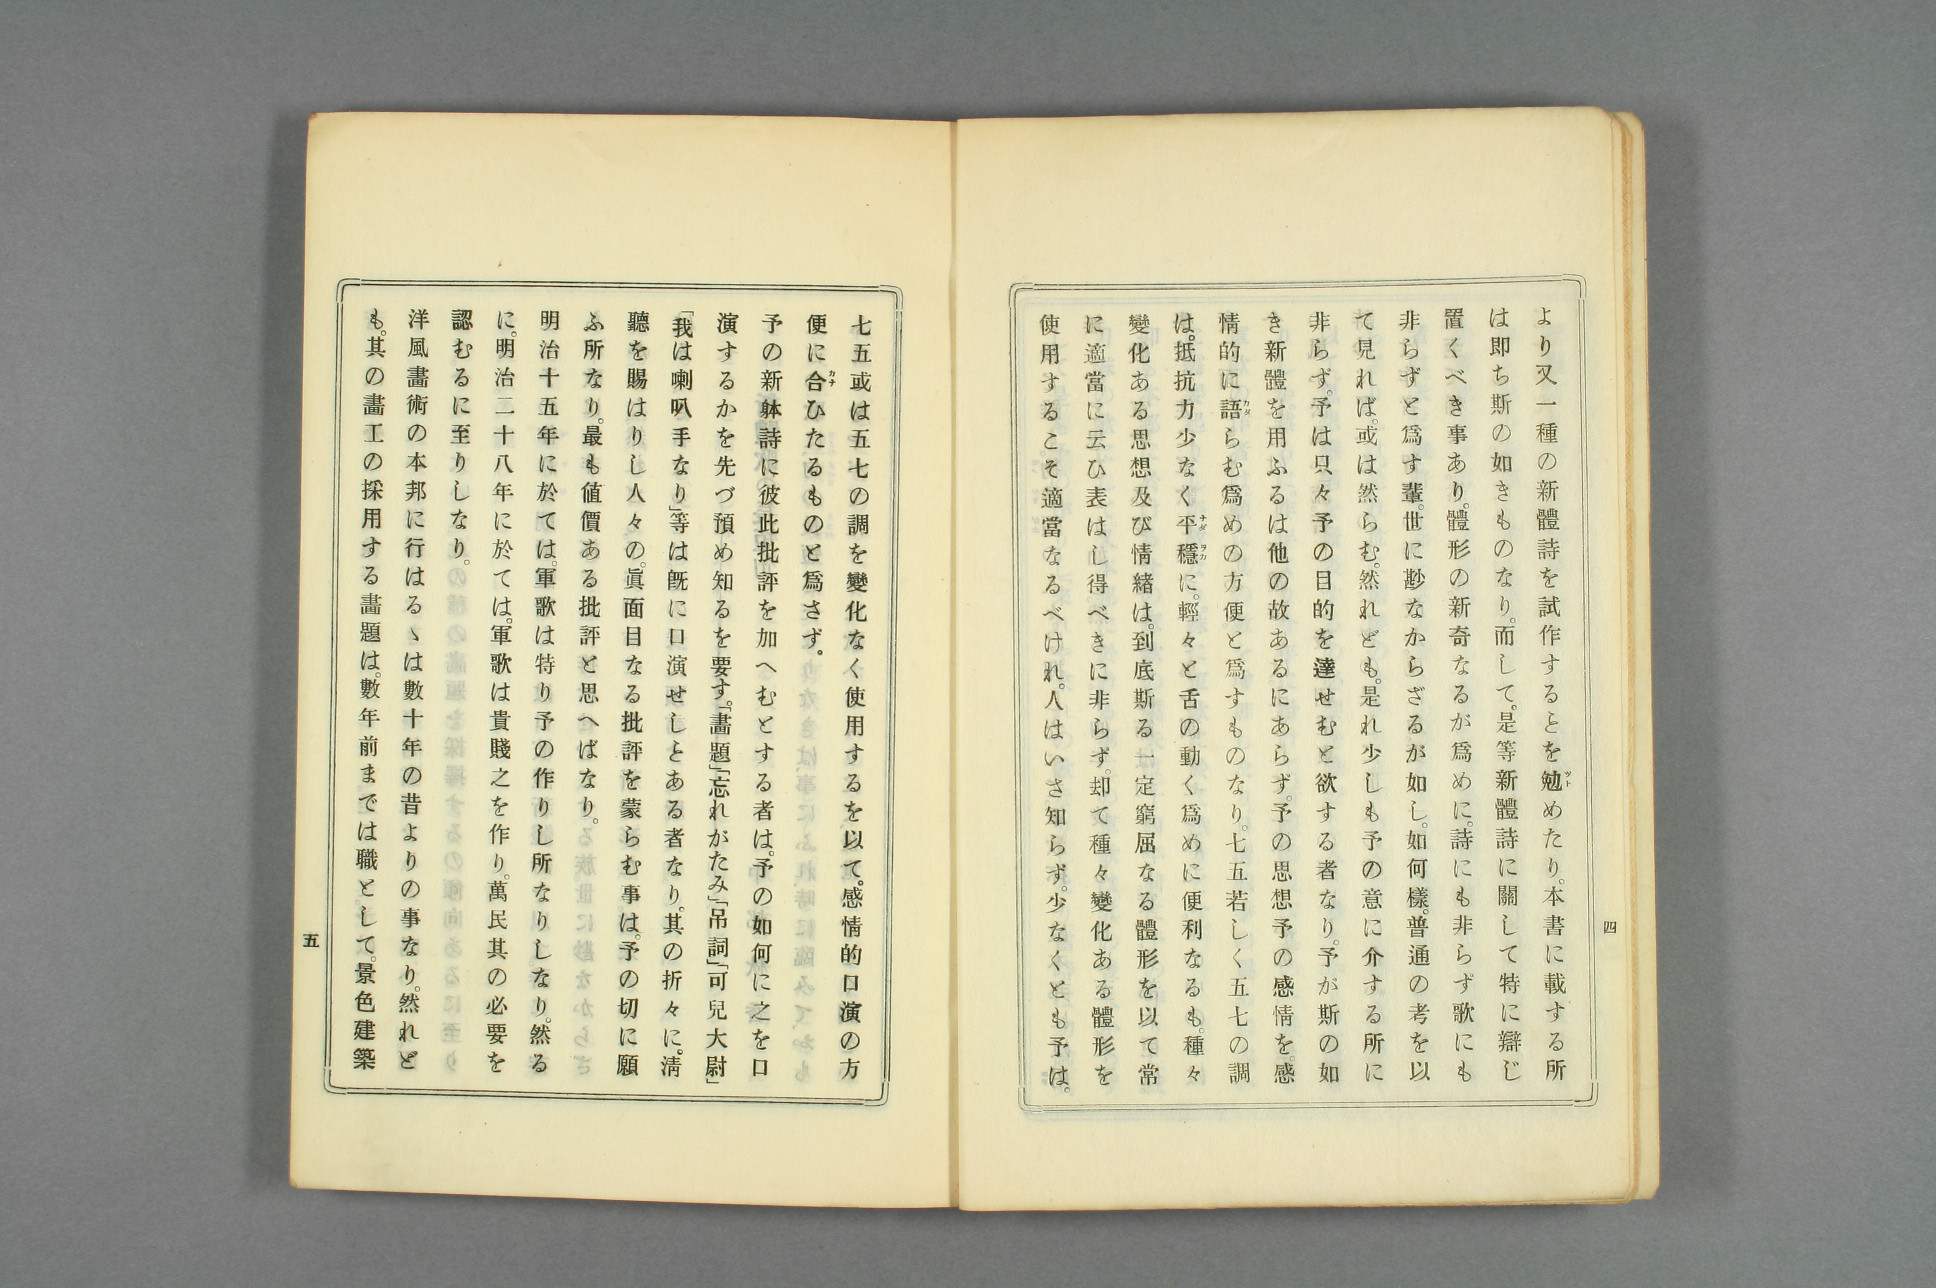 四
より又一種の新體詩を試作することを勉めたり。本書に載する所
は即ち斯の如きものなり。而して。是等新體詩に關して特に辯じ
置くべき事あり。體形の新奇なるが爲めに。詩にも非らず歌にも
非らずと爲す輩。世に尠なからざるが如し。如何樣。普通の考を以
て見れば。或は然らむ。然れども。是れ少しも予の意に介する所に
非らず。予は只々予の目的を達せむと欲する者なり。予が斯の如
き新體を用ふるは他の故あるにあらず。予の思想予の感情を。感
情的に語らむ爲めの方便と爲すものなり。七五若しく五七の調
は。抵抗力少なく平穩に。輕々と舌の動く爲めに便利なるも。種々
變化ある思想及び情緒は。到底斯る一定窮屈なる體形を以て常
に適當に云ひ表はし得べきに非らず。却て種々變化ある體形を
使用するこそ適當なるべけれ。人はいさ知らず。少なくとも予は。
七五或は五七の調を變化なく使用するを以て。感情的口演の方
便に合ひたるものと爲さず。
予の新躰詩に彼此批評を加へむとする者は。予の如何に之を口
演するかを先づ預め知るを要す。「畵題」「忘れがたみ」「吊詞」「可兒大尉」
「我は喇叭手なり」等は旣に口演せしとある者なり。其の折々に。淸
聽を賜はりし人々の。眞面目なる批評を蒙らむ事は。予の切に願
ふ所なり。最も値價ある批評と思へばなり。
明治十五年に於ては。軍歌は特り予の作りし所なりしなり。然る
に。明治二十八年に於ては。軍歌は貴賤之を作り。萬民其の必要を
認むるに至りしなり。
洋風畵術の本邦に行はるゝは數十年の昔よりの事なり。然れど
も。其の畵工の採用する畵題は。數年前までは職として。景色建築
五